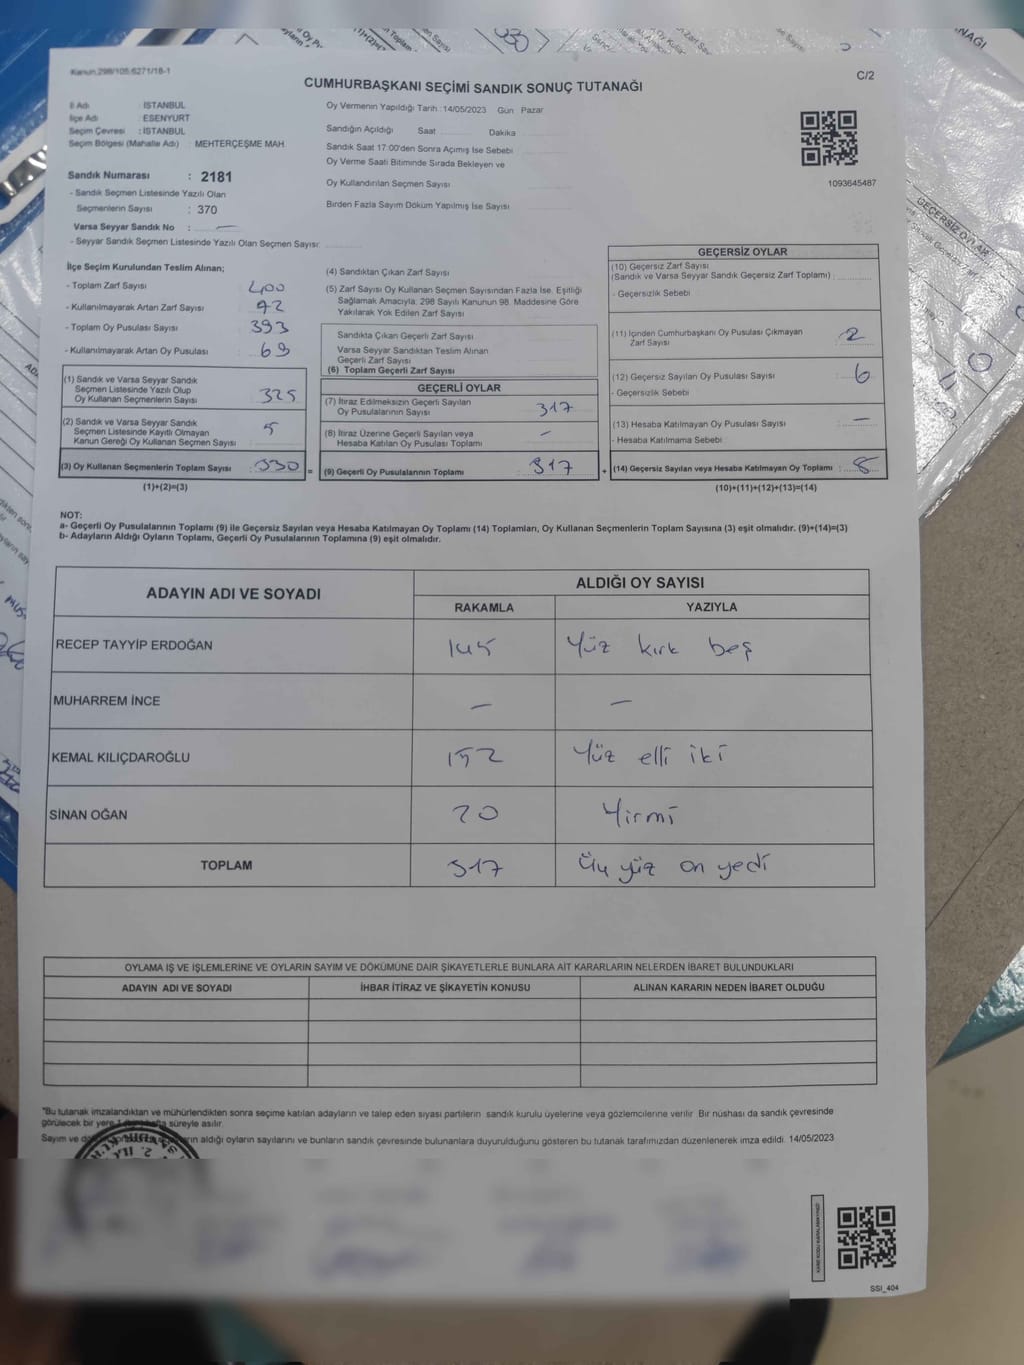 Kanun.298/105:6271/18-1
C/2
CUMHURBAŞKANI SEÇİMİ SANDIK SONUÇ TUTANAĞI
İl Adı : İSTANBUL
İlçe Adı : ESENYURT
Seçim Çevresi : İSTANBUL
Seçim Bölgesi (Mahalle Adı) : MEHTERÇEŞME MAH.
Sandık Numarası : 2181
- Sandık Seçmen Listesinde Yazılı Olan
Seçmenlerin Sayısı : 370
Varsa Seyyar Sandık No : —
- Seyyar Sandık Seçmen Listesinde Yazılı Olan Seçmen Sayısı:
Oy Vermenin Yapıldığı Tarih :14/05/2023 Gün Pazar
Sandığın Açıldığı Saat Dakika
Sandık Saat 17:00'den Sonra Açımış İse Sebebi
Oy Verme Saati Bitiminde Sırada Bekleyen ve
Oy Kullandırılan Seçmen Sayısı
Birden Fazla Sayım Döküm Yapılmış İse Sayısı
1093645487
İlçe Seçim Kurulundan Teslim Alınan;
- Toplam Zarf Sayısı : 400
- Kullanılmayarak Artan Zarf Sayısı : 72
- Toplam Oy Pusulası Sayısı : 393
- Kullanılmayarak Artan Oy Pusulası : 63
(1) Sandık ve Varsa Seyyar Sandık
Seçmen Listesinde Yazılı Olup
Oy Kullanan Seçmenlerin Sayısı : 325
(2) Sandık ve Varsa Seyyar Sandık
Seçmen Listesinde Kayıtlı Olmayan
Kanun Gereği Oy Kullanan Seçmen Sayısı : 5
(3) Oy Kullanan Seçmenlerin Toplam Sayısı : 330 =
(1)+(2)=(3)
(4) Sandıktan Çıkan Zarf Sayısı
(5) Zarf Sayısı Oy Kullanan Seçmen Sayısından Fazla İse, Eşitliği
Sağlamak Amacıyla; 298 Sayılı Kanunun 98. Maddesine Göre
Yakılarak Yok Edilen Zarf Sayısı
Sandıkta Çıkan Geçerli Zarf Sayısı
Varsa Seyyar Sandıktan Teslim Alınan
Geçerli Zarf Sayısı
(6) Toplam Geçerli Zarf Sayısı
GEÇERLİ OYLAR
(7) İtiraz Edilmeksizin Geçerli Sayılan
Oy Pusulalarının Sayısı : 317
(8) İtiraz Üzerine Geçerli Sayılan veya
Hesaba Katılan Oy Pusulası Toplamı : –
(9) Geçerli Oy Pusulalarının Toplamı : 317 +
GEÇERSİZ OYLAR
(10) Geçersiz Zarf Sayısı
(Sandık ve Varsa Seyyar Sandık Geçersiz Zarf Toplamı) :
- Geçersizlik Sebebi
(11) İçinden Cumhurbaşkanı Oy Pusulası Çıkmayan
Zarf Sayısı : 2
(12) Geçersiz Sayılan Oy Pusulası Sayısı : 6
- Geçersizlik Sebebi
(13) Hesaba Katılmayan Oy Pusulası Sayısı : –
- Hesaba Katılmama Sebebi
(14) Geçersiz Sayılan veya Hesaba Katılmayan Oy Toplamı : 8
(10)+(11)+(12)+(13)=(14)
NOT:
a- Geçerli Oy Pusulalarının Toplamı (9) ile Geçersiz Sayılan veya Hesaba Katılmayan Oy Toplamı (14) Toplamları, Oy Kullanan Seçmenlerin Toplam Sayısına (3) eşit olmalıdır. (9)+(14)=(3)
b- Adayların Aldığı Oyların Toplamı, Geçerli Oy Pusulalarının Toplamına (9) eşit olmalıdır.
ADAYIN ADI VE SOYADI
ALDIĞI OY SAYISI
RAKAMLA YAZIYLA
RECEP TAYYİP ERDOĞAN 145 Yüz kırk beş
MUHARREM İNCE – –
KEMAL KILIÇDAROĞLU 152 Yüz elli iki
SİNAN OĞAN 20 Yirmi
TOPLAM 317 Üç yüz on yedi
OYLAMA İŞ VE İŞLEMLERİNE VE OYLARIN SAYIM VE DÖKÜMÜNE DAİR ŞİKAYETLERLE BUNLARA AİT KARARLARIN NELERDEN İBARET BULUNDUKLARI
ADAYIN ADI VE SOYADI İHBAR İTİRAZ VE ŞİKAYETİN KONUSU ALINAN KARARIN NEDEN İBARET OLDUĞU
"Bu tutanak imzalandıktan ve mühürlendikten sonra seçime katılan adayların ve talep eden siyasi partilerin sandık kurulu üyelerine veya gözlemcilerine verilir. Bir nüshası da sandık çevresinde
görülecek bir yere süreyle asılır.
Sayım ve aldığı oyların sayılarını ve bunların sandık çevresinde bulunanlara duyurulduğunu gösteren bu tutanak tarafımızdan düzenlenerek imza edildi. 14/05/2023
SSİ_404
GEÇERSİZ OYLAR